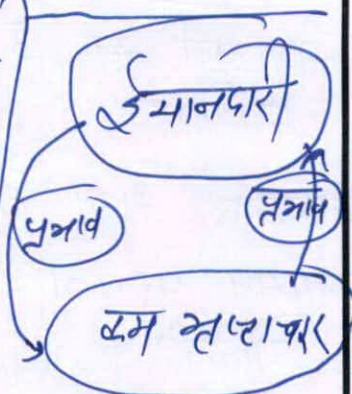 ईमानदारी
प्रभाव
प्रभाव
कम भ्रष्टाचार